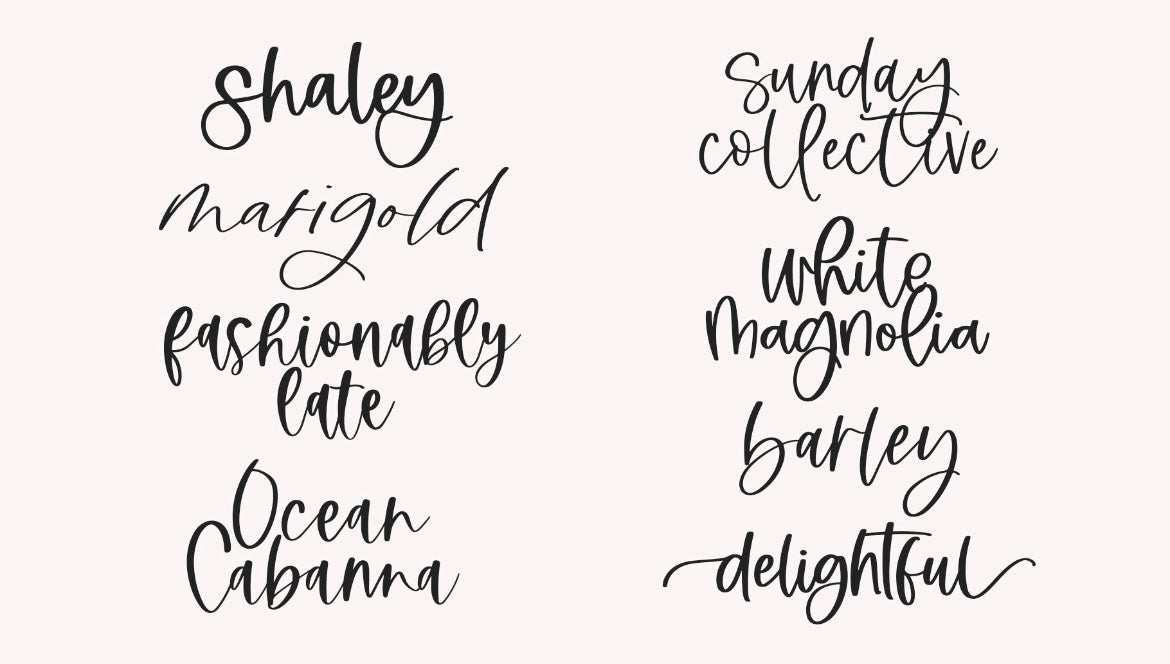 shaley
marigold
fashionably
late
Ocean
Cabanna
Sunday
collective
white
magnolia
barley
delightful